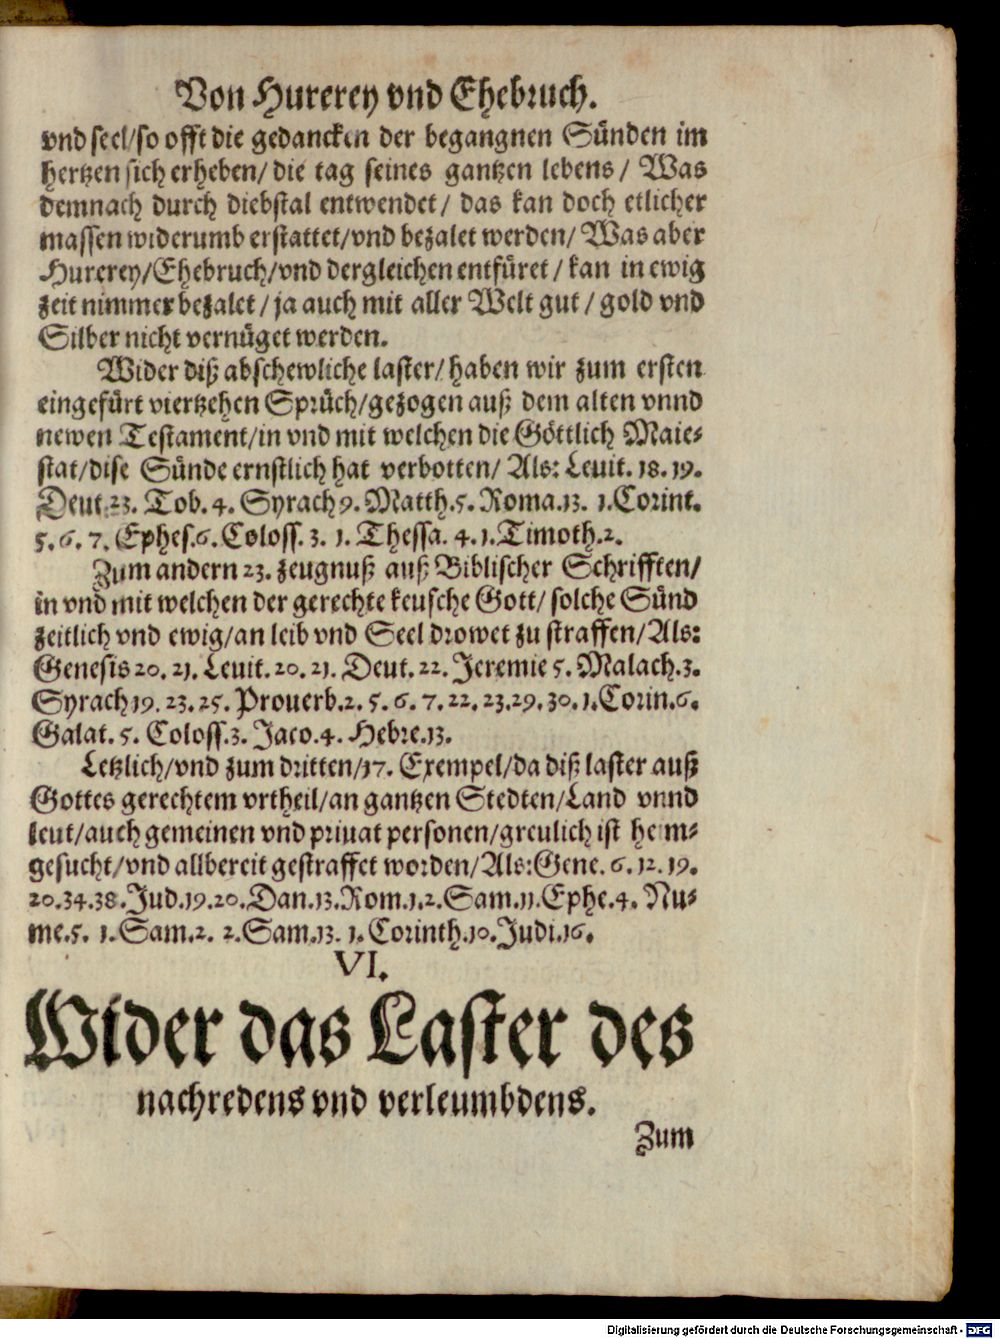 Von Hurerey vnd Ehebruch.
vnd seel/so offt die gedancken der begangnen Sünden im
hertzen sich erheben/ die tag seines gantzen lebens/ Was
demnach durch diebstal entwendet/ das kan doch etlicher
massen widerumb erstattet/vnd bezalet werden/ Was aber
Hurerey/Ehebruch/vnd dergleichen entfüret/ kan in ewig
zeit nimmer bezalet/ ja auch mit aller Welt gut/ gold vnd
Silber nicht vernüget werden.
Wider diß abschewliche laster/ haben wir zum ersten
eingefürt viertzehen Sprüch/gezogen auß dem alten vnnd
newen Testament/in vnd mit welchen die Göttlich Maie-
stat/dise Sünde ernstlich hat verbotten/ Als: Leuit. 18. 19.
Deut. 23. Tob. 4. Syrach 9. Matth. 5. Roma. 13. 1. Corint.
5. 6. 7. Ephes. 6. Coloss. 3. 1. Thessa. 4. 1. Timoth. 2.
Zum andern 23. zeugnuß auß Biblischer Schrifften/
in vnd mit welchen der gerechte keusche Gott/ solche Sünd
zeitlich vnd ewig/an leib vnd Seel drowet zu straffen/Als:
Genesis 20. 21. Leuit. 20. 21. Deut. 22. Jeremie 5. Malach. 3.
Syrach 19. 23. 25. Prouerb. 2. 5. 6. 7. 22. 23. 29. 30. 1. Corin. 6.
Galat. 5. Coloss. 3. Jaco. 4. Hebre. 13.
Letzlich/vnd zum dritten/17. Exempel/da diß laster auß
Gottes gerechtem vrtheil/an gantzen Stedten/Land vnnd
leut/auch gemeinen vnd priuat personen/greulich ist heim-
gesucht/vnd allbereit gestraffet worden/Als: Gene. 6. 12. 19.
20. 34. 38. Jud. 19. 20. Dan. 13. Rom. 1. 2. Sam. 11. Ephe. 4. Nu-
me. 5. 1. Sam. 2. 2. Sam. 13. 1. Corinth. 10. Judi. 16.
VI.
Wider das Laster des
nachredens vnd verleumbdens.
Zum
Digitalisierung gefördert durch die Deutsche Forschungsgemeinschaft - DFG